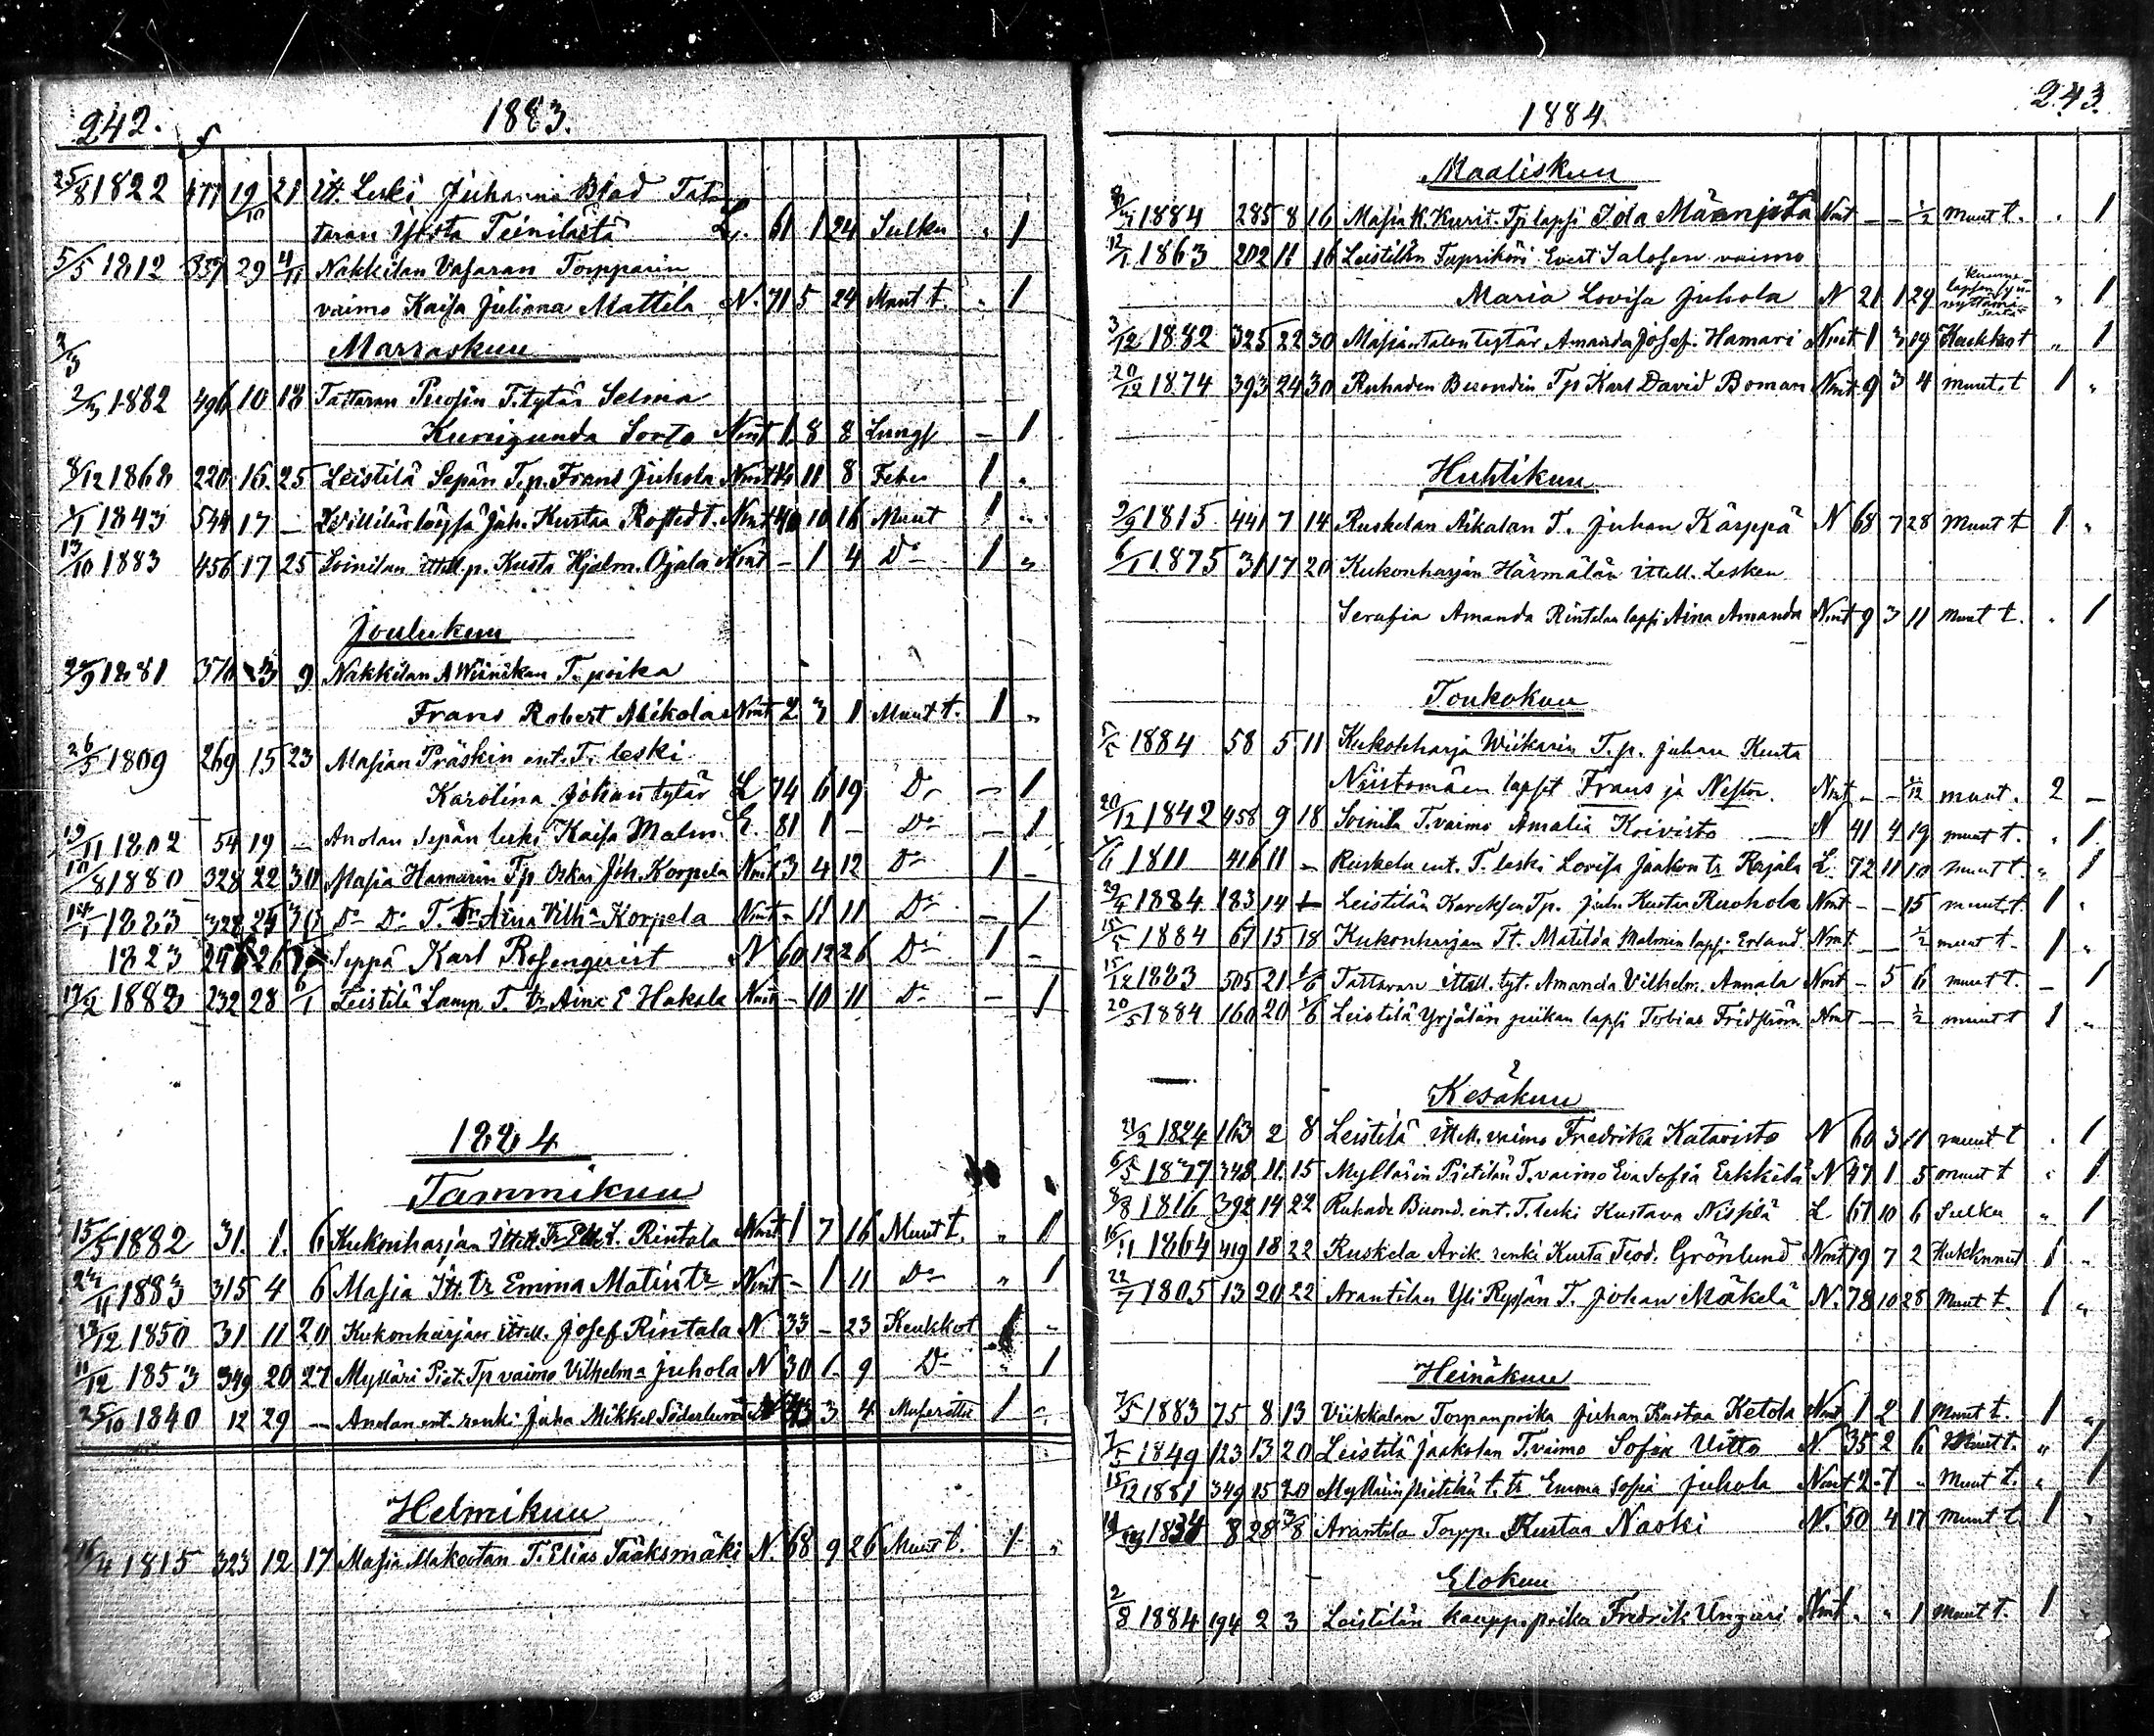 242. 1883.
25/8 1822 477 19/10 21 Itt. Leski Juhanna Blad Tat
taran Yösta Teinilästä L. 61 1 24 Sulku " 1
5/5 1812 337 29 4/11 Nakkilan Vasaran Torpparin
vaimo Kaisa Juliana Mattila N. 71 5 24 Muut t. " 1
Marraskuu
2/3
2/3 1882 496 10 18 Tattaran T. tytär Selma
Kunigunda Sorto Nmt 1 8 8 Lungf — 1
8/12 1868 220 16 25 Leistilä Sepän T.p. Frans Juhola Nmt 14 11 8 Feber 1 "
1/1 1843 544 17 — Juh. Kustaa Rostedt Nmt 40 10 16 Muut 1 "
13/10 1883 456 17 25 Soinilan ittell p. Kusta Hjalm. Ojala Nmt — 1 4 Do 1 "
Joulukuu
2/9 1881 376 3 9 Nakkilan A Wiinikan T. poika
Frans Robert Mikola Nmt 2 3 1 Muut t. 1 "
26/5 1809 269 15 23 Masian Präskin ent. T. leski
Karolina Johan tytär L 74 6 19 Do — 1
19/11 1802 54 19 — Anolan Sepän leski Kaisa Malm. L. 81 1 — Do — 1
18/8 1880 328 22 30 Masia Hamarin Tp Oskar Joh. Korpela Nmt 3 4 12 Do 1 —
14/1 1883 328 25 30 Do Do T. tr Aina Vilh-a Korpela Nmt — 11 11 Do — 1
1823 26 Seppä Karl Rosenqvist N 60 12 26 Do 1 —
17/2 1883 232 28 6/1 Leistilä Lamp. T. tr Aina E Hakala Nmt — 10 11 Do — 1
1884
Tammikuu
15/5 1882 31. 1. 6 Kukonharjan Ittell. Tr L. Rintala Nmt 1 7 16 Muut t. " 1
23/11 1883 315 4 6 Masia Itt. tr Emma Matintr Nmt — 1 11 Do " 1
18/12 1850 31 11 20 Kukonharjan ittell. Josef Rintala N. 33 — 23 Keukkot 1 "
11/12 1853 349 20 27 Mylläri Piet. Tp vaimo Vilhelm-a Juhola N 30 1 9 Do " 1
25/10 1840 12 29 — Anolan ent. renki Juha Mikkel Söderlund 43 3 4 1 "
Helmikuu
16/4 1815 323 12 17 Masia Makootan T. Elias Tääksmäki N. 68 9 26 Muut t. 1 "
1884 243.
Maaliskuu
1884 285 8 16 Masia K. Kurit. Tp lapsi Ida Männistä Nmt — — 1/2 muut t. " 1
12/1 1863 202 11 16 Leistilän Evert Salosen vaimo
Maria Lovisa Juhola N 21 1 29 kuume lapsen syn-nyttämi-sestä " 1
3/12 1882 325 22 30 Masian talon tytär Amanda Josef. Hamari Nmt 1 3 19 Keukkot " 1
20/12 1874 393 24 30 Ruhaden Buondin Tp Karl David Boman Nmt 9 3 4 muut. t 1 "
Huhtikuu
2/9 1815 441 7 14 Ruskelan Aikalan T. Juhan Kärppä N 68 7 28 Muut t 1 "
6/1 1875 31 17 20 Kukonharjan Härmälän ittell. Lesken
Serafia Amanda Rintalan lapsi Aina Amanda Nmt 9 3 11 Muut t. " 1
Toukokuu
5/5 1884 58 5 11 Kukonharja Wiikarin T.p. Juhan Kusta
Niistomäen lapset Frans ja Nestor. Nmt — — 1/12 muut. 2 —
20/12 1842 458 9 18 Soinila T. vaimo Amalia Koivisto — N 41 4 19 muut t. " 1
1/6 1811 416 11 — Ruskela ent. T. leski Lovisa Jaakon tr Karjala L. 72 11 10 muut t. " 1
29/4 1884 183 14 — Leistilän Tp. Juh. Kustaa Ruohola Nmt — — 15 muut. t. 1 "
15/5 1884 67 15 18 Kukonharjan Tt. Matilda Malmin lapsi Erland Nmt — 1/2 muut t. 1 "
15/12 1883 505 21 1/6 Tattaran ittell. tyt. Amanda Vilhelm. Annala Nmt — 5 6 muut t. — 1
20/5 1884 160 20 1/6 Leistilä Yrjälän piikan lapsi Tobias Fridström Nmt — — 1/2 muut t 1 "
Kesäkuu
21/2 1824 163 2 8 Leistilä ittell. vaimo Fredrika Katavisto N 60 3 11 muut t . 1
6/5 1837 348 11 15 Myllärin Pietilän T. vaimo Eva Sofia Erkkilä N 47 1 5 muut t " 1
8/8 1816 392 14 22 Ruhade Buond. ent. T. leski Kustava L 67 10 6 Sulku " 1
16/11 1864 419 18 22 Ruskela Arik. renki Kusta Teod. Grönlund Nmt 19 7 2 Hukkunut 1 "
22/7 1805 13 20 22 Arantilan Yli Rypsän T. Johan Mäkelä N. 78 10 28 Muut t. 1 "
Heinäkuu
7/5 1883 75 8 13 Viikkalan Torpanpoika Juhan Kustaa Ketola Nmt 1 2 1 Muut t. 1 "
7/5 1849 123 13 20 Leistilä Jaakolan T. vaimo Sofia Uitto N 35 2 6 Muut t. " 1
15/12 1881 349 15 20 Myllärin Pietilän t. tr. Emma Sofia Juhola Nmt 2 7 " Muut t. " 1
1834 8 28 3/8 Arantila Torpp. Kustaa Naski N. 50 4 17 Muut t. 1 "
Elokuu
2/8 1884 194 2 3 Leistilän kaupp. poika Fredrik Ungari Nmt " " 1 Muut t. 1 "